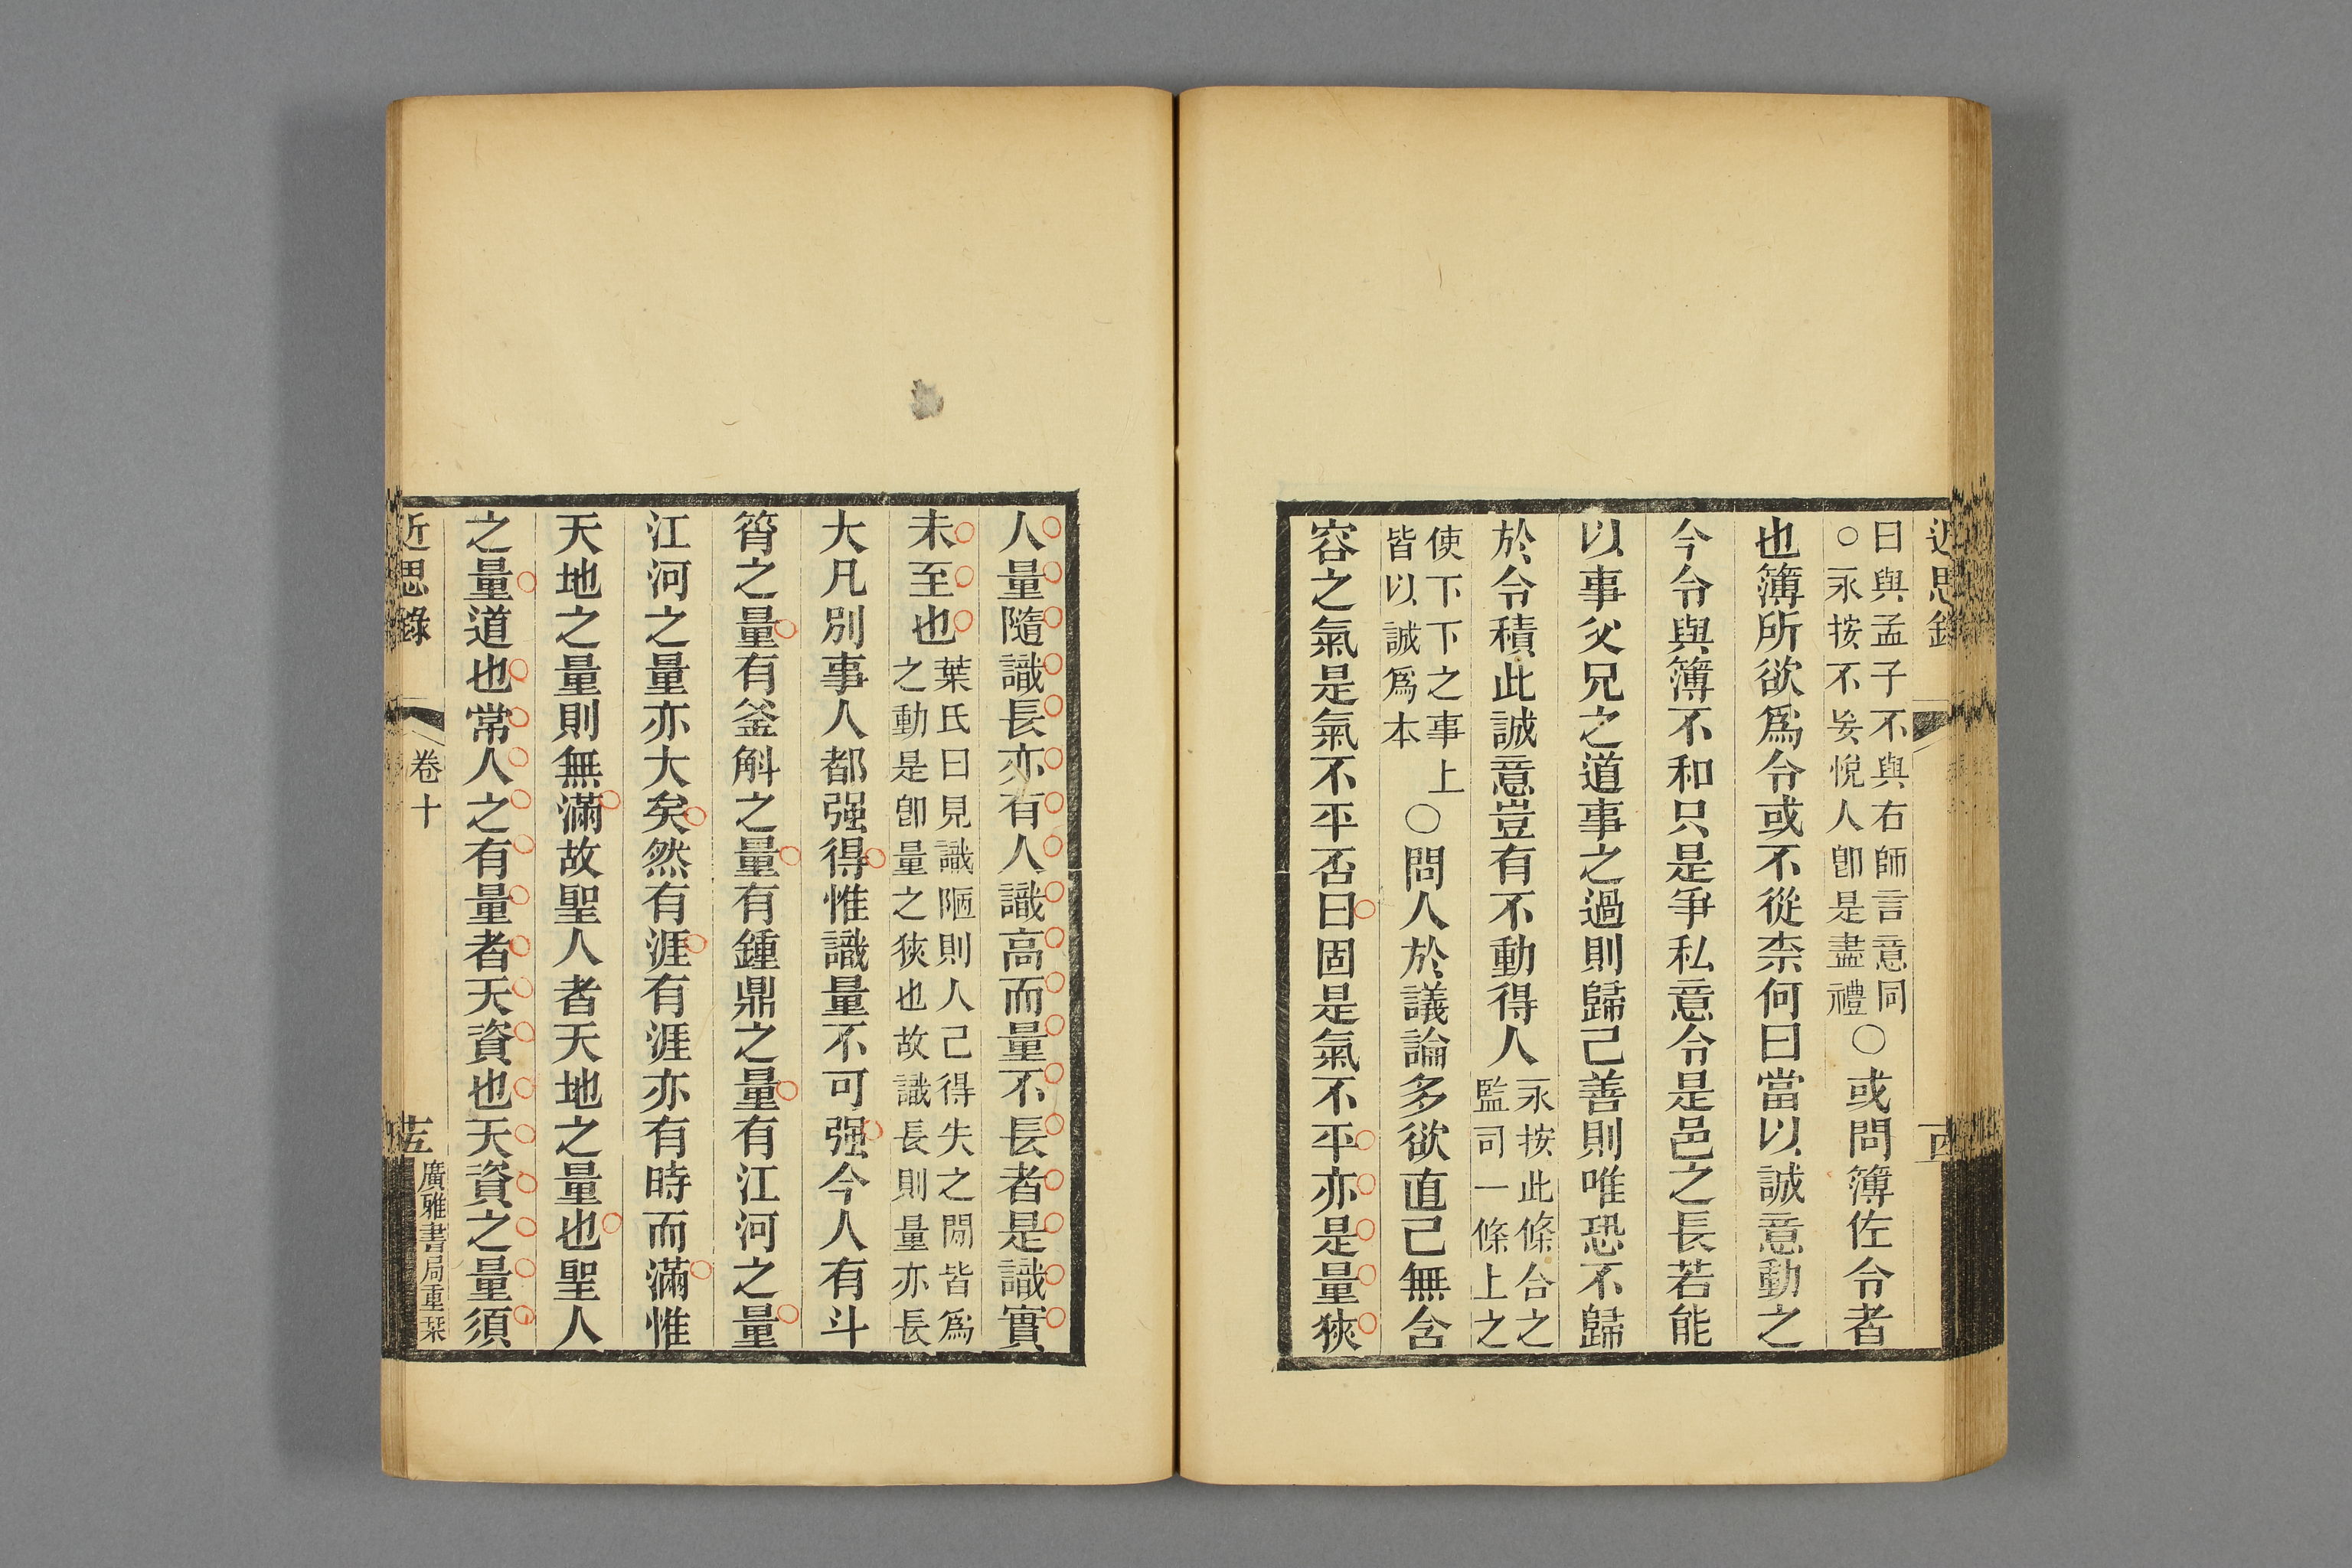 近思錄
曰與孟子不與右師言意同
○永按不妄悅人卽是盡禮○或問簿佐令者
也簿所欲爲令或不從柰何曰當以誠意動之
今令與簿不和只是爭私意令是邑之長若能
以事父兄之道事之過則歸己善則唯恐不歸
於令積此誠意豈有不動得人永按此條合之
監司一條上之
使下下之事上
皆以誠爲本○問人於議論多欲直己無含
容之氣是氣不平否曰固是氣不平亦是量狹
人量隨識長亦有人識高而量不長者是識實
未至也葉氏曰見識陋則人己得失之閒皆爲
之動是卽量之狹也故識長則量亦長
大凡別事人都强得惟識量不可强今人有斗
筲之量有釜斛之量有鍾鼎之量有江河之量
江河之量亦大矣然有涯有涯亦有時而滿惟
天地之量則無滿故聖人者天地之量也聖人
之量道也常人之有量者天資也天資之量須
近思錄
卷十
十五
廣雅書局重栞